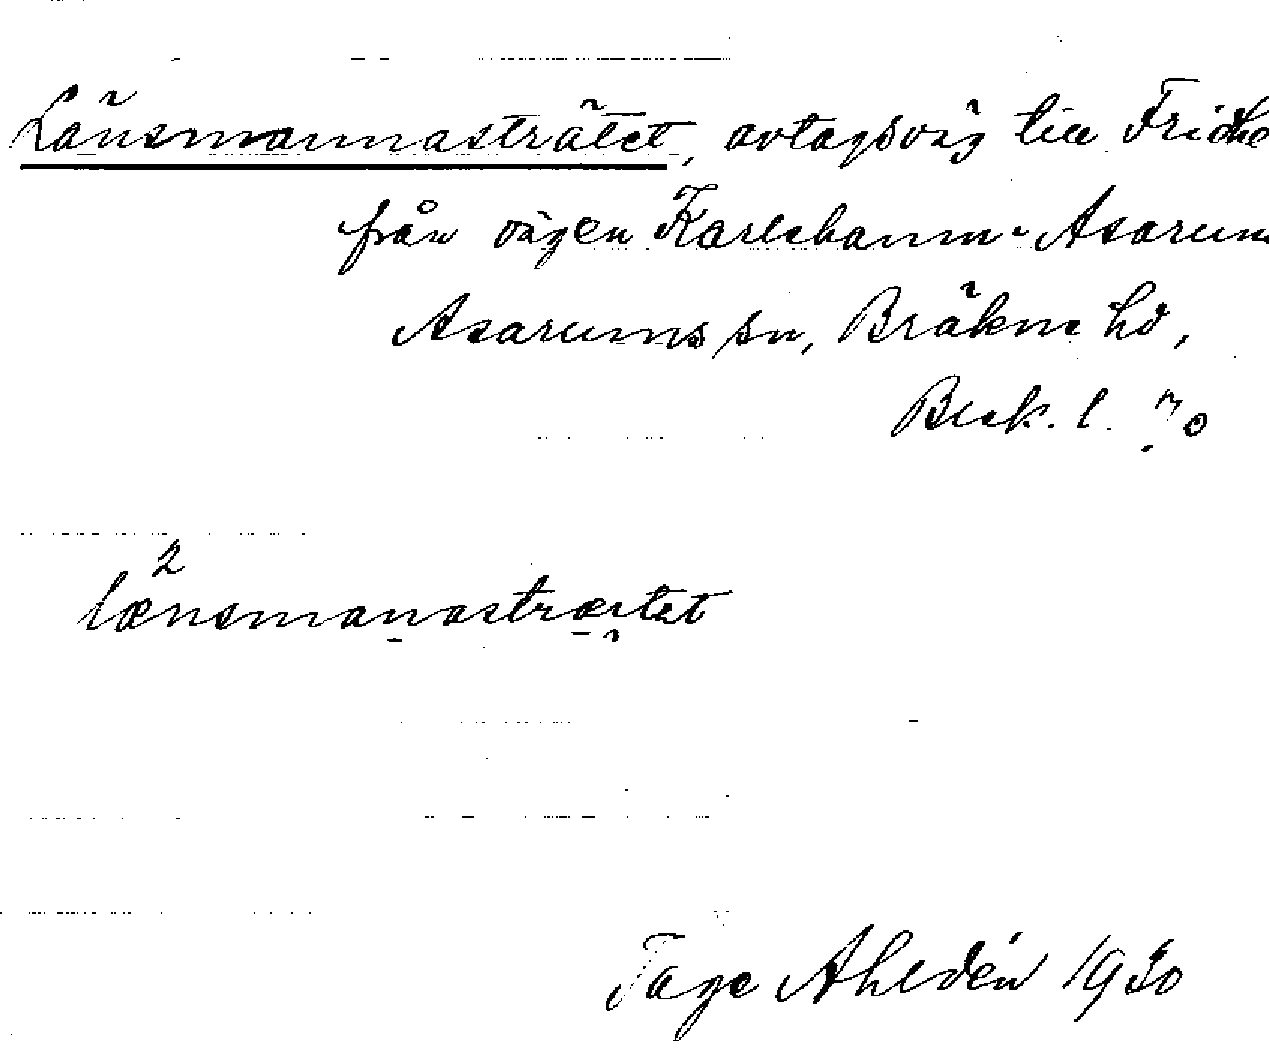 Länsmannasträtet, avtagsväg till
från vägen Karlshamn-Asarum
Asarums sn, Bräkne hd,
Blek. l. 30
2
lænsmanastrætet
Tage Ahldén 1930